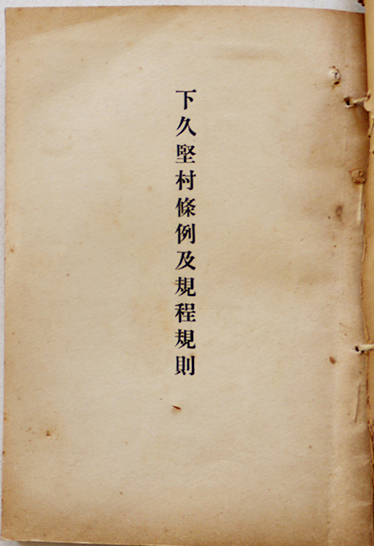 下久堅村條例及規程規則